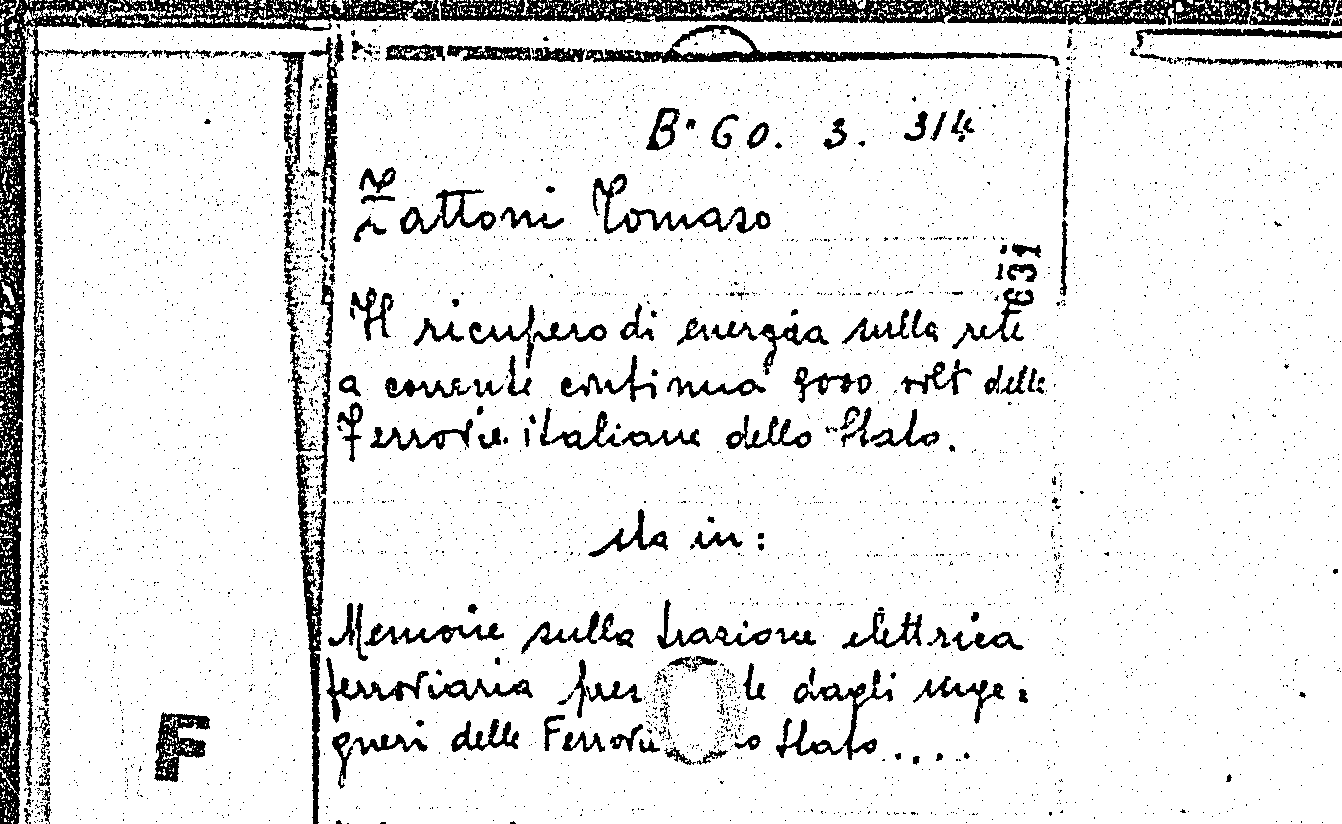 B° 60. 3. 314
Zattoni Tomaso
631
Il ricupero di energia sulla rete
a corrente continua 3000 volt delle
Ferrovie italiane dello Stato.
Sta in:
Memorie sulla trazione elettrica
ferroviaria pres le dagli inge:
gneri delle Ferrovie o Stato....
F